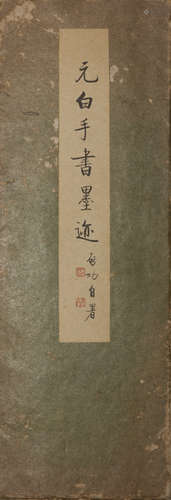 元白手書墨迹
啟功自署